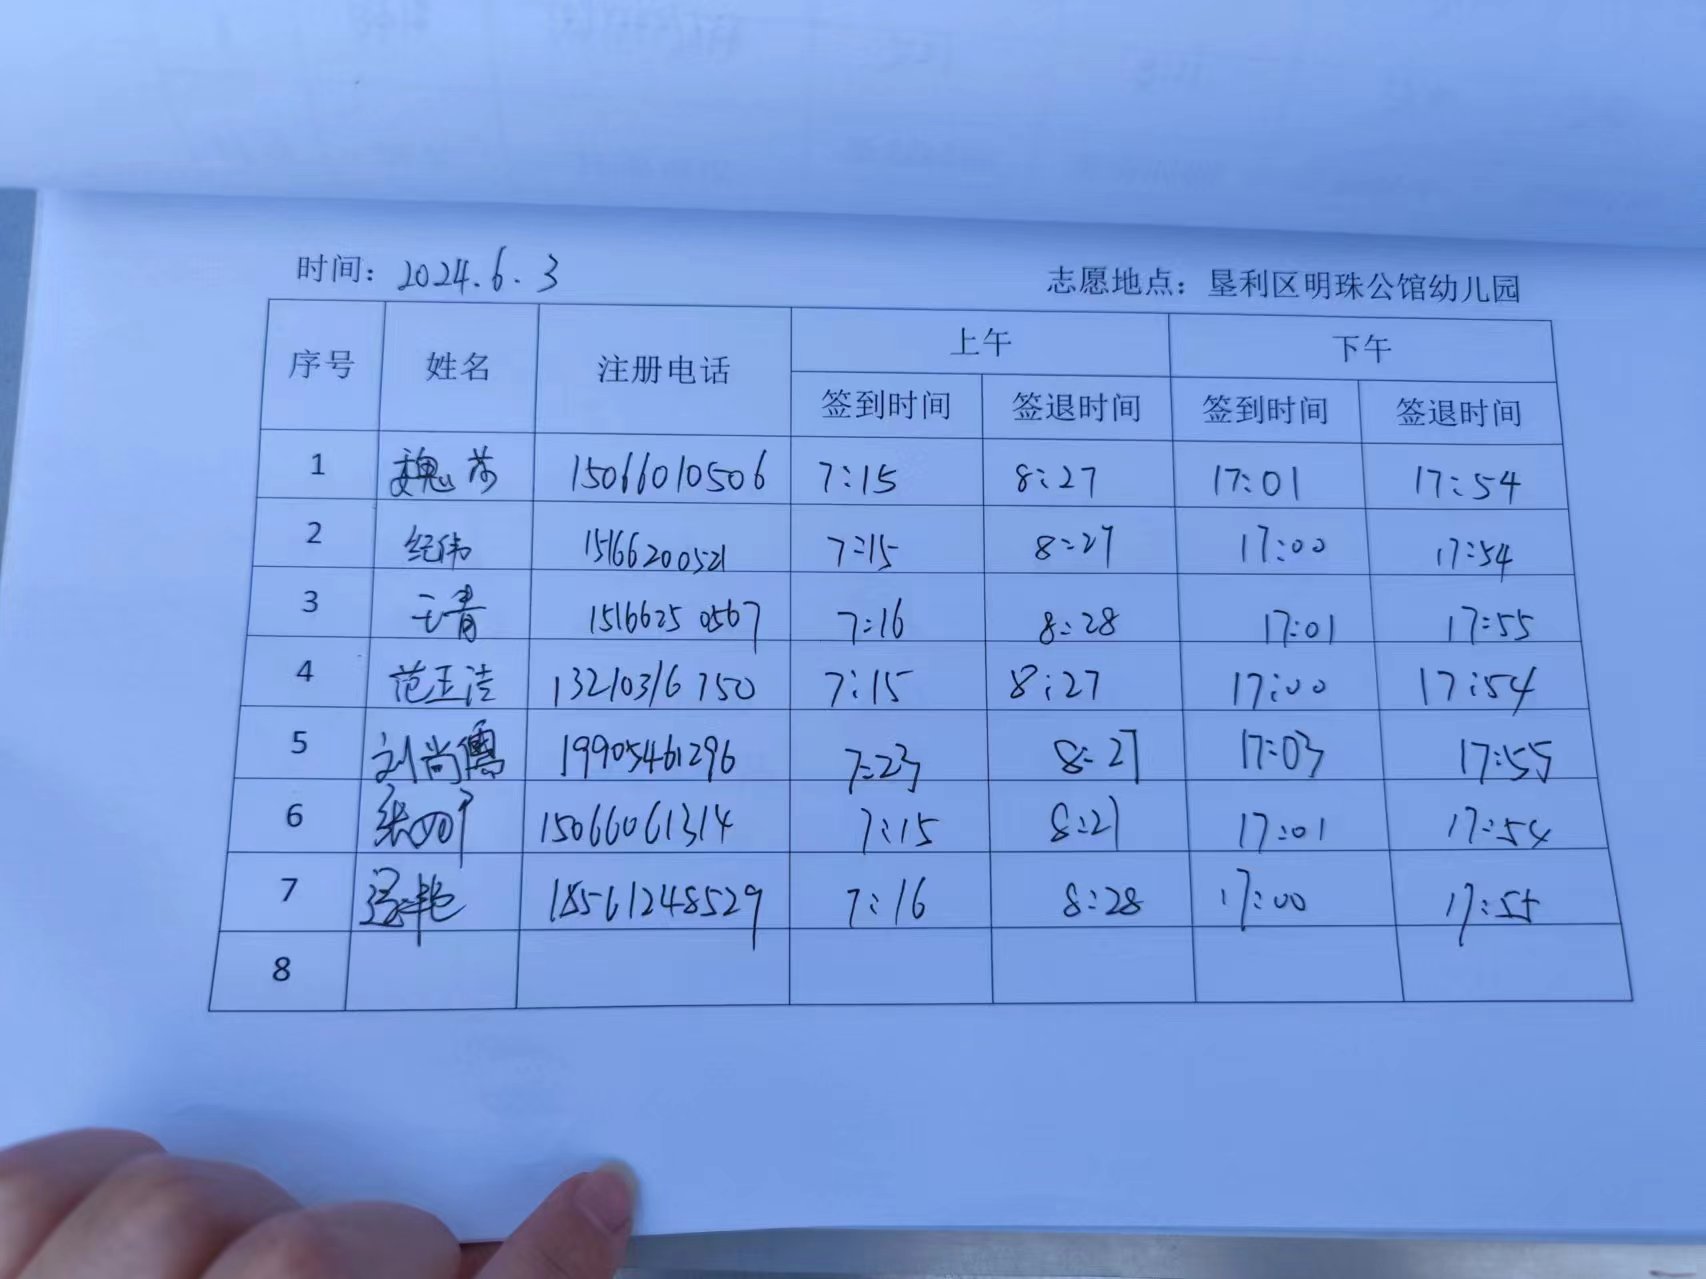 时间：2024.6.3 志愿地点：垦利区明珠公馆幼儿园
序号 姓名 注册电话 上午 下午
签到时间 签退时间 签到时间 签退时间
1 魏芳 15066010506 7:15 8:27 17:01 17:54
2 纪伟 15166200521 7:15 8:27 17:00 17:54
3 王青 15166250567 7:16 8:28 17:01 17:55
4 范玉洁 13210316750 7:15 8:27 17:00 17:54
5 刘尚儒 19905461296 7:23 8:27 17:03 17:55
6 15066061314 7:15 8:27 17:01 17:54
7 18561248529 7:16 8:28 17:00 17:55
8